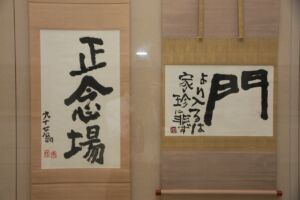 正念場
門
より入るは
家珍に非ず